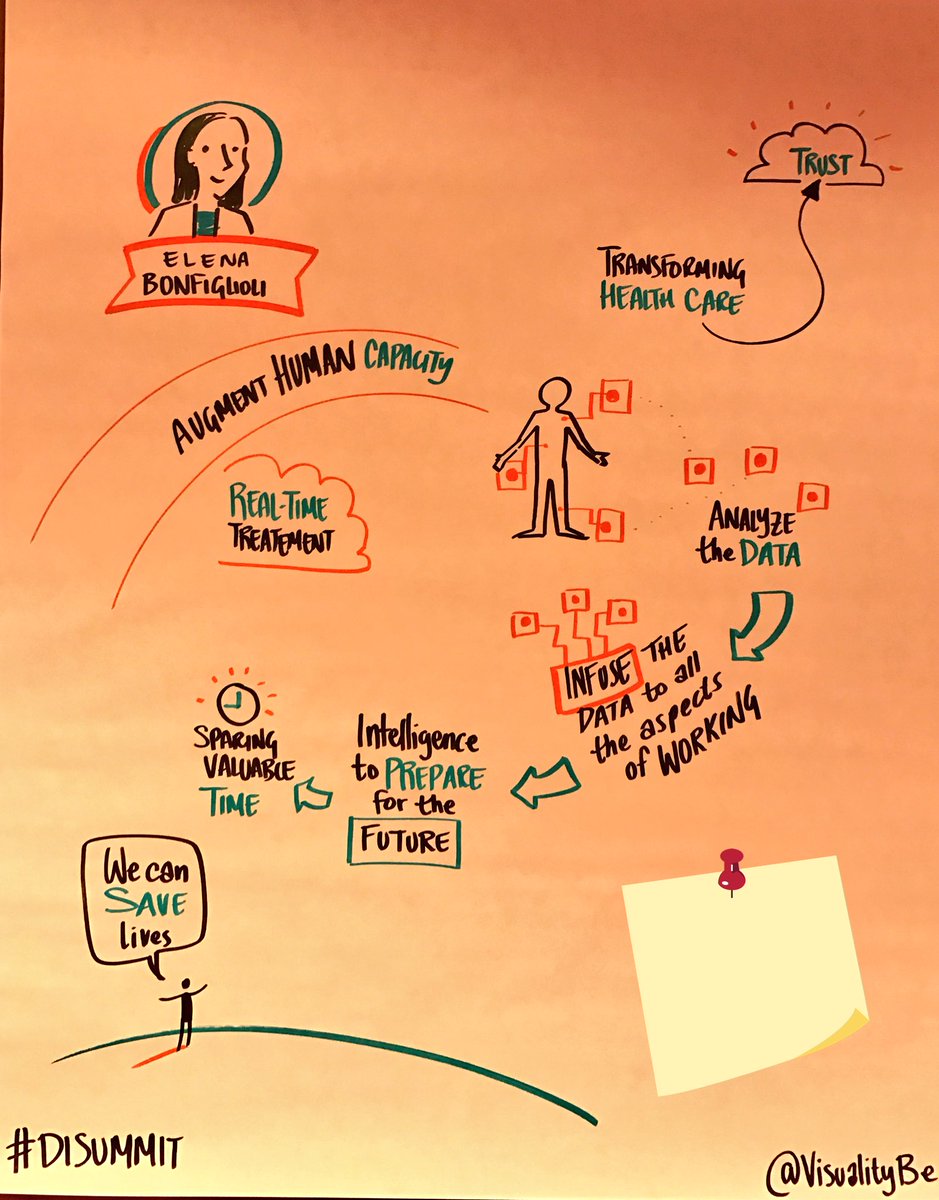 ELENA
BONFIGLIOLI
TRUST
TRANSFORMING
HEALTH CARE
AUGMENT HUMAN CAPACITY
REAL-TIME
TREATEMENT
ANALYZE
the DATA
INFUSE THE
DATA to all
the aspects
of WORKING
Intelligence
to PREPARE
for the
FUTURE
SPARING
VALUABLE
TIME
We can
SAVE
lives
#DISUMMIT
@VisualityBe